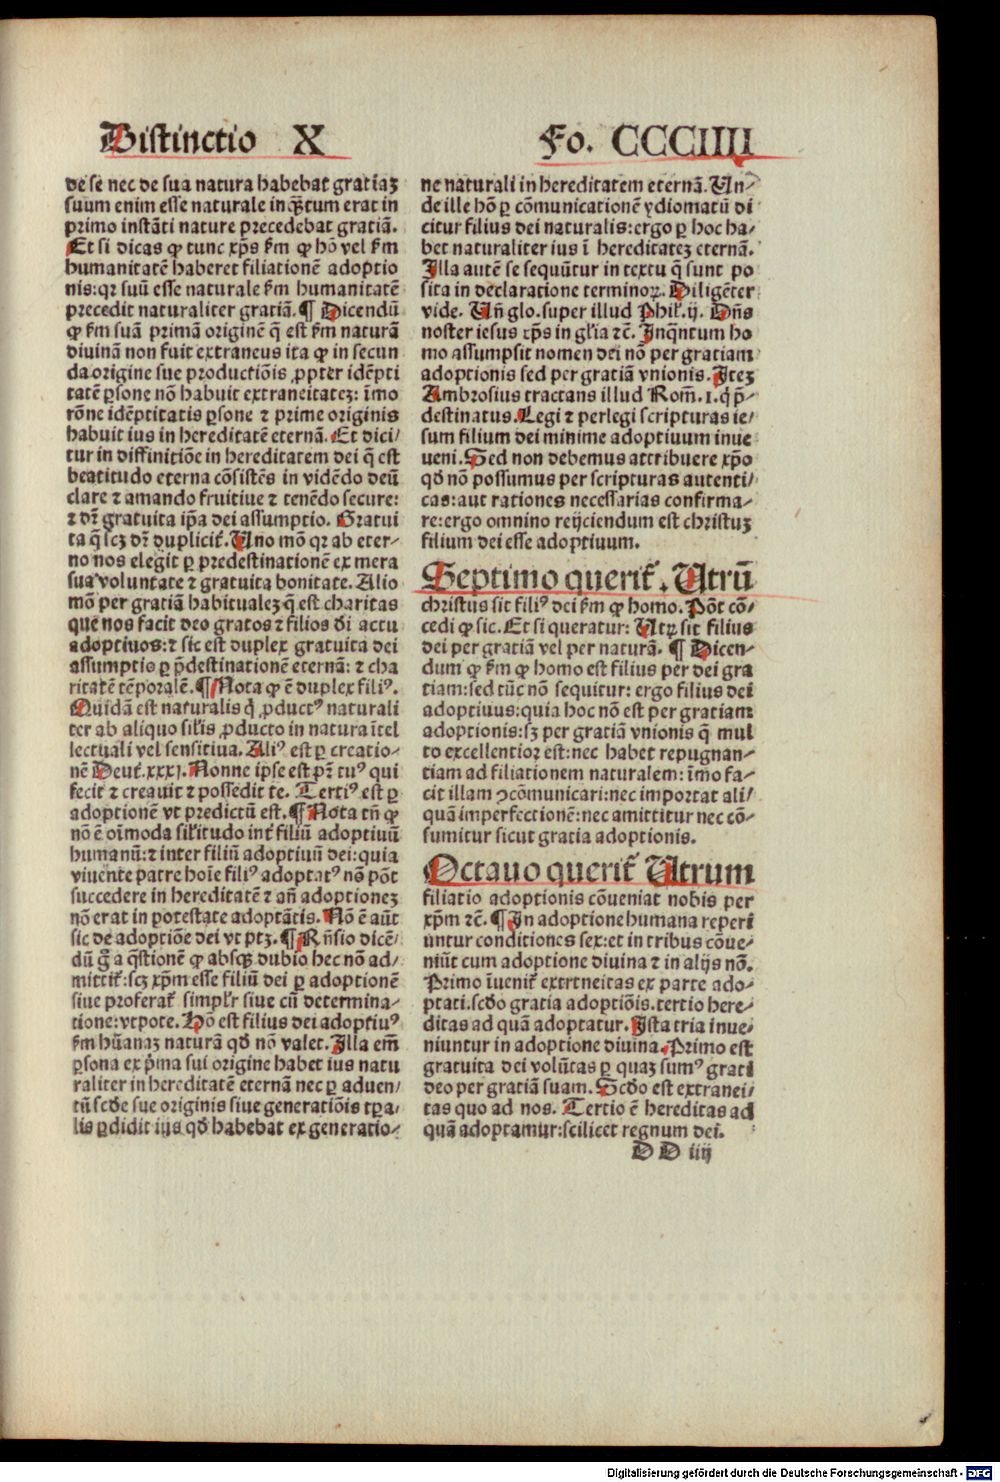 Distinctio X
Fo. CCCIIII
de se nec de sua natura habebat gratiaꝫ
suum enim esse naturale inqꝫtum erat in
primo instāti nature precedebat gratiā.
Et si dicas ꝙ tunc xp̄s ẜm ꝙ hō vel ẜm
humanitatē haberet filiationē adoptio
nis:qꝛ suū esse naturale ẜm humanitatē
precedit naturaliter gratiā.¶ Dicendū
ꝙ ẜm suā primā originē q̄ est ẜm naturā
diuinā non fuit extraneus ita ꝙ in secun
da origine sue productiōis ꝓpter idēpti
tatē ꝑsone nō habuit extraneitateꝫ: īmo
rōne idēptitatis ꝑsone ⁊ prime originis
habuit ius in hereditatē eternā. Et dici/
tur in diffinitiōe in hereditatem dei q̄ est
beatitudo eterna cōsistēs in vidēdo deū
clare ⁊ amando fruitiue ⁊ tenēdo secure:
⁊ dr̄ gratuita ip̄a dei assumptio. Gratui
ta q̄ scꝫ dr̄ duplicit̄. Uno mō qꝛ ab eter/
no nos elegit ꝑ predestinationē ex mera
sua voluntate ⁊ gratuita bonitate. Alio
mō per gratiā habitualeꝫ q̄ est charitas
que nos facit deo gratos ⁊ filios di actu
adoptiuos:⁊ sic est duplex gratuita dei
assumptis ꝑ p̄destinationē eternā: ⁊ cha
ritatē tēporalē.¶ Nota ꝙ ē duplex filiꝰ.
Quidā est naturalis q̇ ꝓductꝰ naturali
ter ab aliquo sil̄is ꝓducto in natura ītel
lectuali vel sensitiua. Aliꝰ est ꝑ creatio/
nē Deut̄.xxxj. Nonne ipse est pr̄ tuꝰ qui
fecit ⁊ creauit ⁊ possedit te. Tertiꝰ est ꝑ
adoptionē vt predictū est.¶ Nota tn̄ ꝙ
nō ē oīmoda sil̄itudo int̄ filiū adoptiuū
humanū:⁊ inter filiū adoptiuū dei:quia
viuente patre hoīe filiꝰ adoptatꝰ nō pōt
succedere in hereditatē ⁊ an̄ adoptioneꝫ
nō erat in potestate adoptātis. Nō ē aūt
sic de adoptiōe dei vt ptꝫ.¶ Rn̄sio dicē/
dū g̊ a q̄stionē ꝙ absqꝫ dubio hec nō ad/
mittit̄:scꝫ xp̄m esse filiū dei ꝑ adoptionē
siue proferat̄ simpl̄r siue cū determina/
tione:vtpote. Hō est filius dei adoptiuꝰ
ẜm hūanaꝫ naturā qd nō valet. Illa em̄
ꝑsona ex p̄ma sui origine habet ius natu
raliter in hereditatē eternā nec ꝑ aduen/
tū scde sue originis siue generatiōis tꝑa/
lis ꝑdidit iys qd habebat ex generatio/
ne naturali in hereditatem eternā. Un/
de ille hō ꝑ cōmunicationē ydiomatū di
citur filius dei naturalis:ergo ꝑ hoc ha/
bet naturaliter ius ī hereditateꝫ eternā.
Illa autē se sequūtur in textu q̄ sunt po
sita in declaratione terminoꝝ. Diligēter
vide. Un̄ glo. super illud Phil̄.ij. Dn̄s
noster iesus xp̄s in gl̄ia ⁊c̄. Inqn̄tum ho
mo assumpsit nomen dei nō per gratiam
adoptionis sed per gratiā vnionis. Iteꝫ
Ambrosius tractans illud Rom̄.1.q̇ p̄/
destinatus. Legi ⁊ perlegi scripturas ie/
sum filium dei minime adoptiuum inue
ueni. Sed non debemus attribuere xp̄o
qd nō possumus per scripturas autenti/
cas:aut rationes necessarias confirma/
re:ergo omnino reijciendum est christuꝫ
filium dei esse adoptiuum.
Septimo querit̄. Utrū
christus sit filiꝰ dei ẜm ꝙ homo. Pōt cō/
cedi ꝙ sic. Et si queratur: Utꝝ sit filius
dei per gratiā vel per naturā. ¶ Dicen/
dum ꝙ ẜm ꝙ homo est filius per dei gra
tiam:sed tūc nō sequitur: ergo filius dei
adoptiuus:quia hoc nō est per gratiam
adoptionis:sꝫ per gratiā vnionis q̄ mul
to excellentioꝝ est:nec habet repugnan/
tiam ad filiationem naturalem: īmo fa/
cit illam ꝯcōmunicari:nec importat ali/
quā imperfectionē:nec amittitur nec cō/
sumitur sicut gratia adoptionis.
Octauo querit̄ Utrum
filiatio adoptionis cōueniat nobis per
xp̄m ⁊c̄. ¶ In adoptione humana reperi
untur conditiones sex:et in tribus cōue/
niūt cum adoptione diuina ⁊ in alijs nō.
Primo īuenit̄ extrtneitas ex parte ado/
ptati.scdo gratia adoptiōis.tertio here/
ditas ad quā adoptatur. Ista tria inue/
niuntur in adoptione diuina. Primo est
gratuita dei volūtas ꝑ quaꝫ sumꝰ grati
deo per gratiā suam. Scdo est extranei/
tas quo ad nos. Tertio ē hereditas ad
quā adoptamur:scilicet regnum dei.
D D iiij
Digitalisierung gefördert durch die Deutsche Forschungsgemeinschaft - DFG